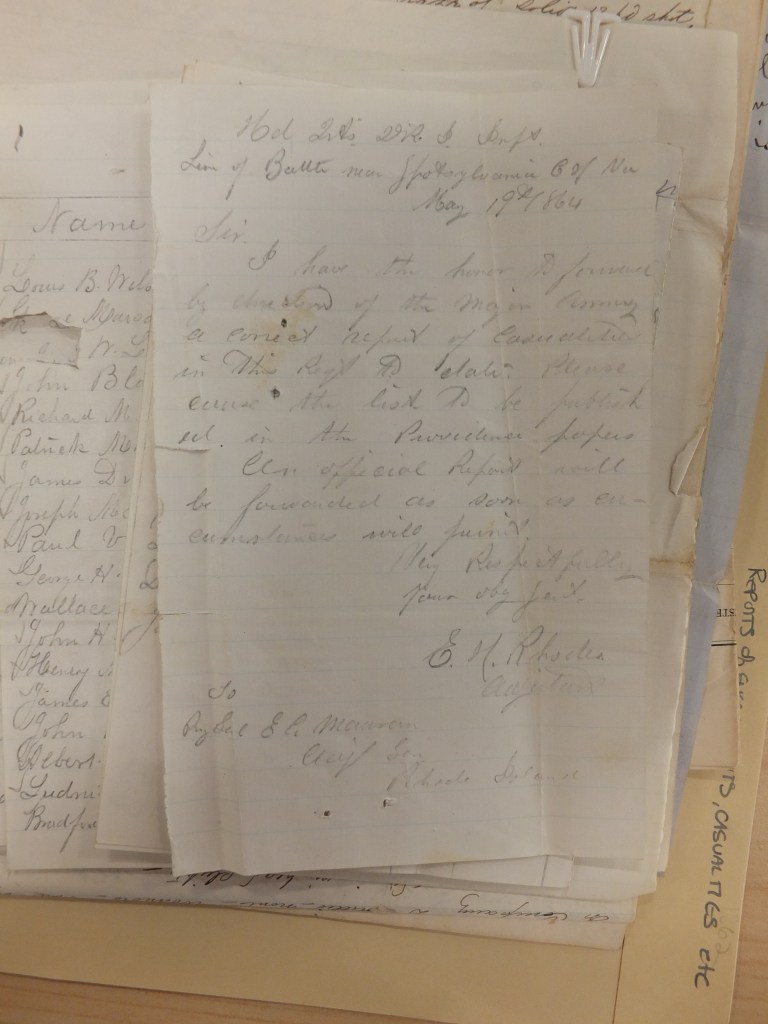 of Solid 12 lb shot.
Hd Qts 2 R. I. Inft.
Line of Battle near Spotsylvania C H Va
May 19th/864
Sir.
I have the honor to forward
by direction of the Major Commdg
a correct report of Casualties
in this Regt to date. Please
cause the list to be publish
ed. in the Providence papers
An official Report will
be forwarded as soon as cir-
cumstances will permit.
Very Respectfully
Your obg Servt.
E. H. Rhodes
Adjutant
To
Brig Genl E C. Mauran
Adjt Gen
Rhode Island
Name
Louis B. Wils
W. L
John Bla
Richard M
Patrick Mc
James Dr
Joseph Mc
Paul V
George H.
Wallace
John H
Henry
James E
John
Albert
Bradfor
Company
REPORTS
CASUALTIES etc
1862